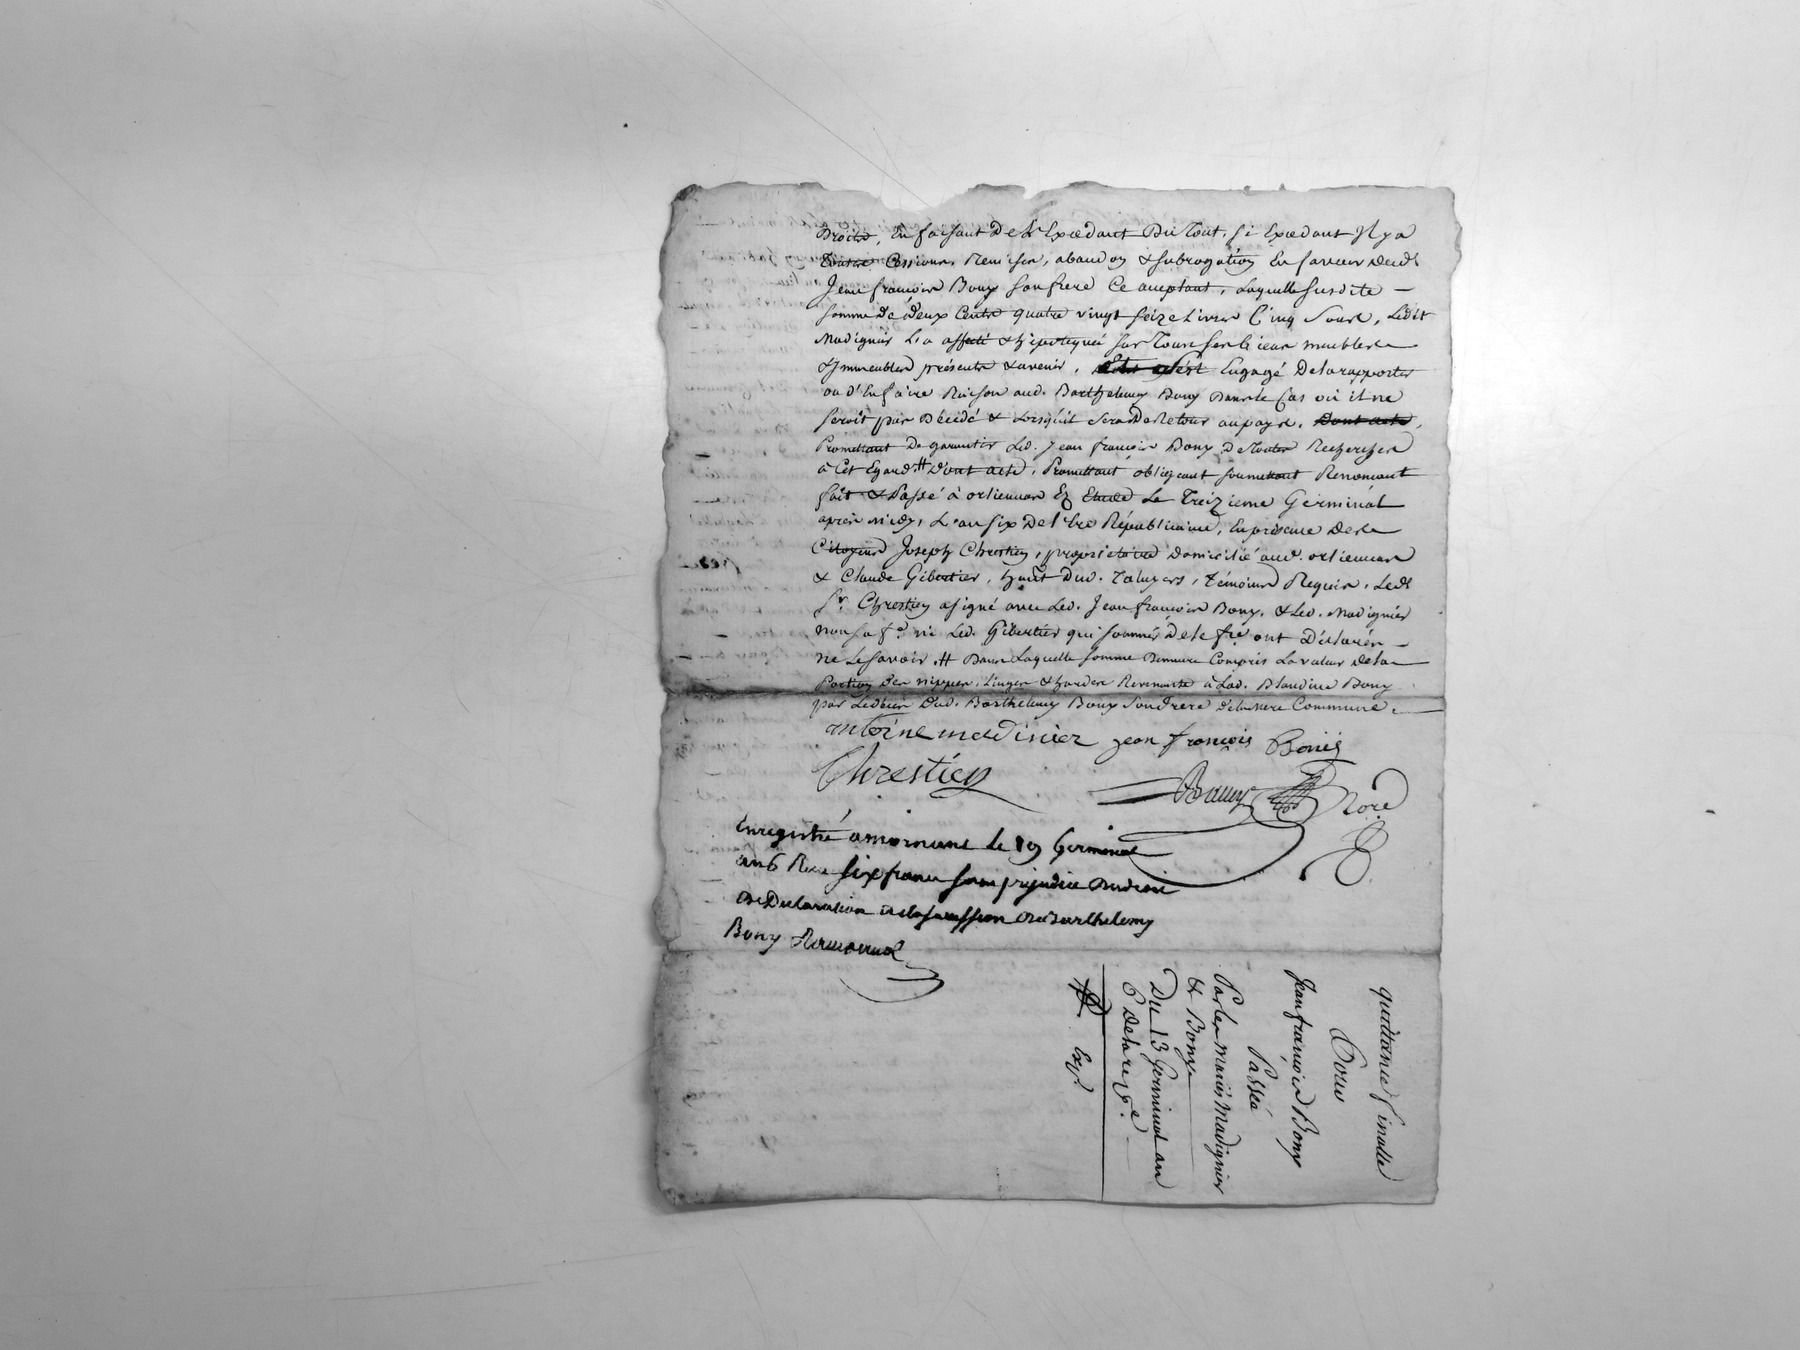 Droits, En faisant De l'Excedant Du Tout, si Excedant Il y a
Toutes Cessions, Remises, abandon & subrogation En faveur dud.
Jean françois Bony son frere Ce acceptant, Laquelle susdite —
somme de deux Cents quatre vingt seize Livres Cinq Sous, Ledit
Madignier L'a affecté & hipotequé sur Tous ses biens meubles
& Immeubles présents & avenir, Engagé De la rapporter
ou d'En faire Raison aud. Barthelemy Bony Dans le Cas où il ne
seroit pas Décédé & Lorsqu'il sera De Retour au pays. Dont acte,
Promettant De garantir Led. Jean françois Bony de toutes Recherches
à Cet Egard # Dont acte, Promettant obligeant soumettant Renoncant
fait & Passé à orlienas Ez Etude Le Treizieme Germinal
après midy, L'an six De l'Ere Républicaine, En présence des
Citoyens Joseph Chrestien, propriétaire domicilié aud. orlienas
& Claude Gibertier, hant Dud. Taluyers, témoins Requis. Led.
Sr. Chrestien a signé avec Led. Jean françois Bony, & Led. Madignier
non sa fe. ni Led. Gibertier qui sommés de le fre ont Déclarés —
ne Le savoir. # Dans Laquelle somme Demeure Compris La valeur de la
Portion des nippes, Linges & hardes Revenants à Lad. Blandine Bony
par Ledbien Dud. Barthelemy Bony Son frere de la mere Commune. —
antoine madinier jean françois Bonij
Chrestien
Bauy Nore.
Enregistré a mornant le 19 Germinal
an 6 Reçu six francs sans prejudice Du droit
De Declaration de la succession de Barthelemy
Bony
quittance finalle
Pour
Jean françois Bony
Passée
Par les mariés Madignier
& Bony
Du 13 Germinal an
6 de la rep.e
Exp.